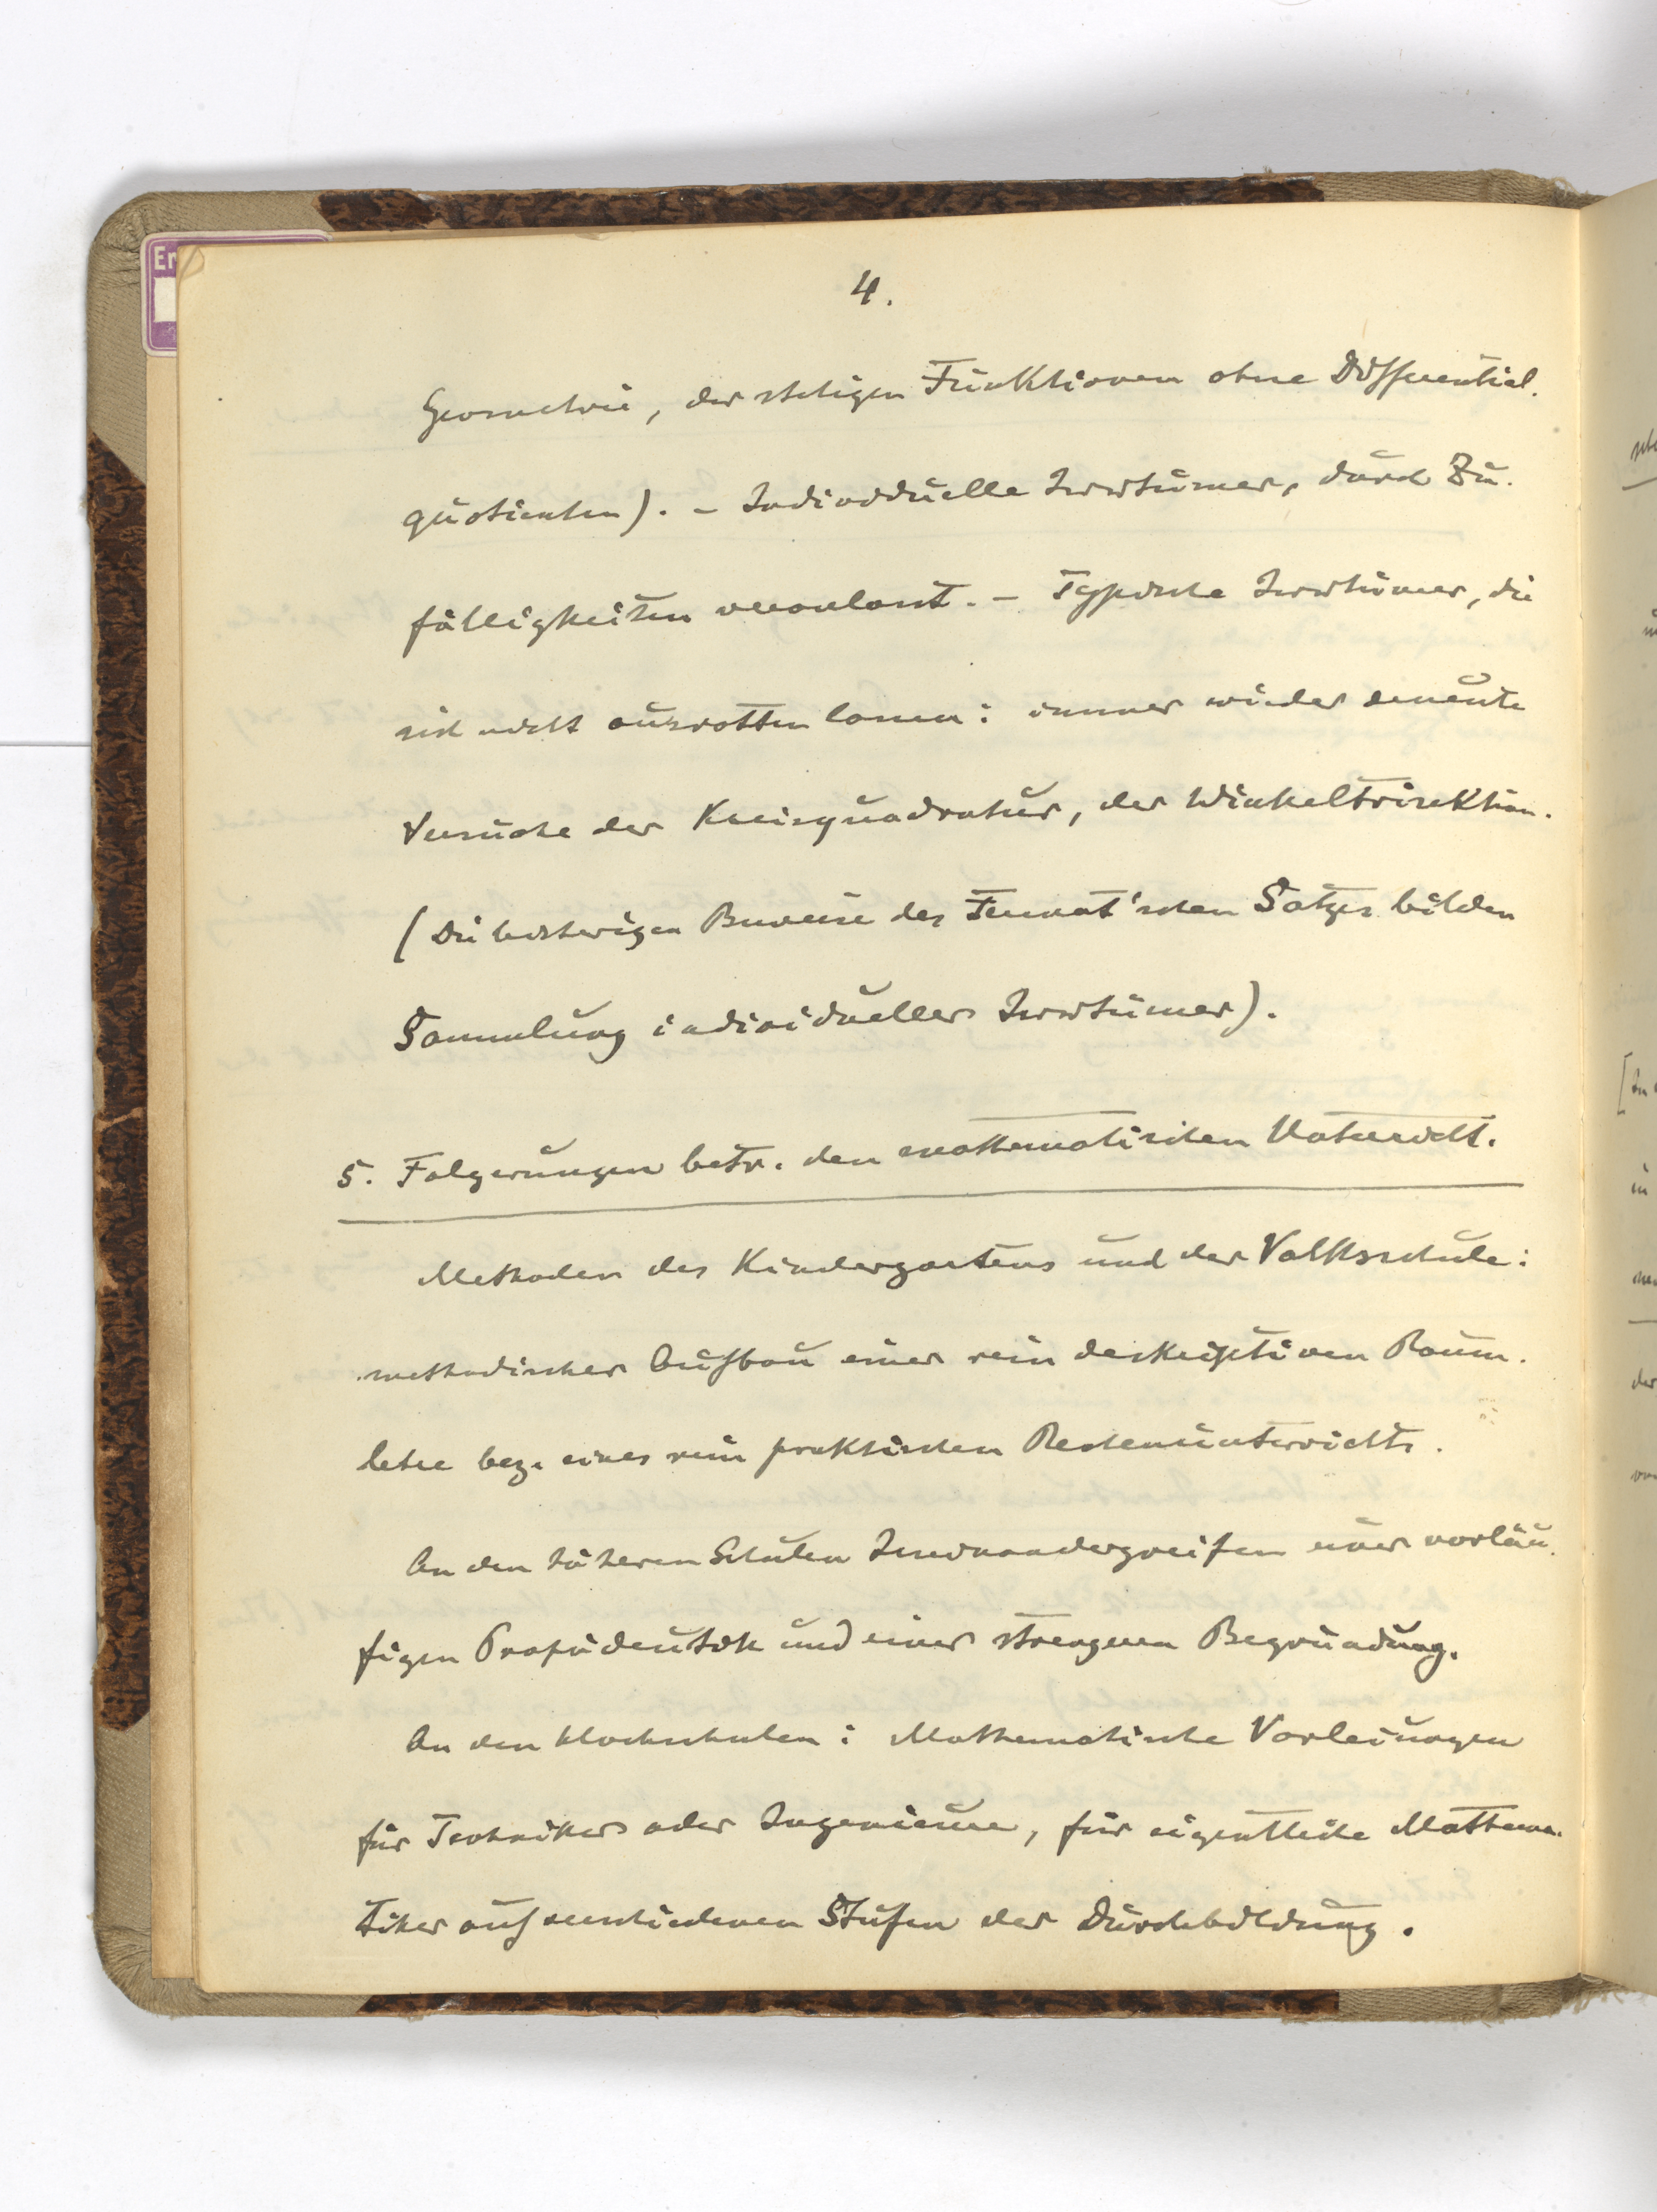 4.
Geometrie, der stetigen Funktionen ohne Differential-
quotienten). – Individuelle Irrtümer, durch Zu-
fälligkeiten veranlasst. – Typische Irrtümer, die
sich nicht ausrotten lassen: immer wieder erneute
Versuche der Kreisquadratur, der Winkeltrisektion.
(Die bisherigen Beweise des Fermat'schen Satzes bilden
Sammlung individueller Irrtümer).
5. Folgerungen betr. den mathematischen Unterricht.
Methoden des Kindergartens und der Volksschule:
methodischer Aufbau einer rein deskriptiven Raum-
lehre bez. eines rein praktischen Rechenunterrichts.
An den höheren Schulen Ineinandergreifen einer vorläu-
figen Propädeutik und einer strengeren Begründung.
An den Hochschulen: Mathematische Vorlesungen
für Techniker oder Ingenieure, für eigentliche Mathema-
tiker auf verschiedenen Stufen der Durchbildung.